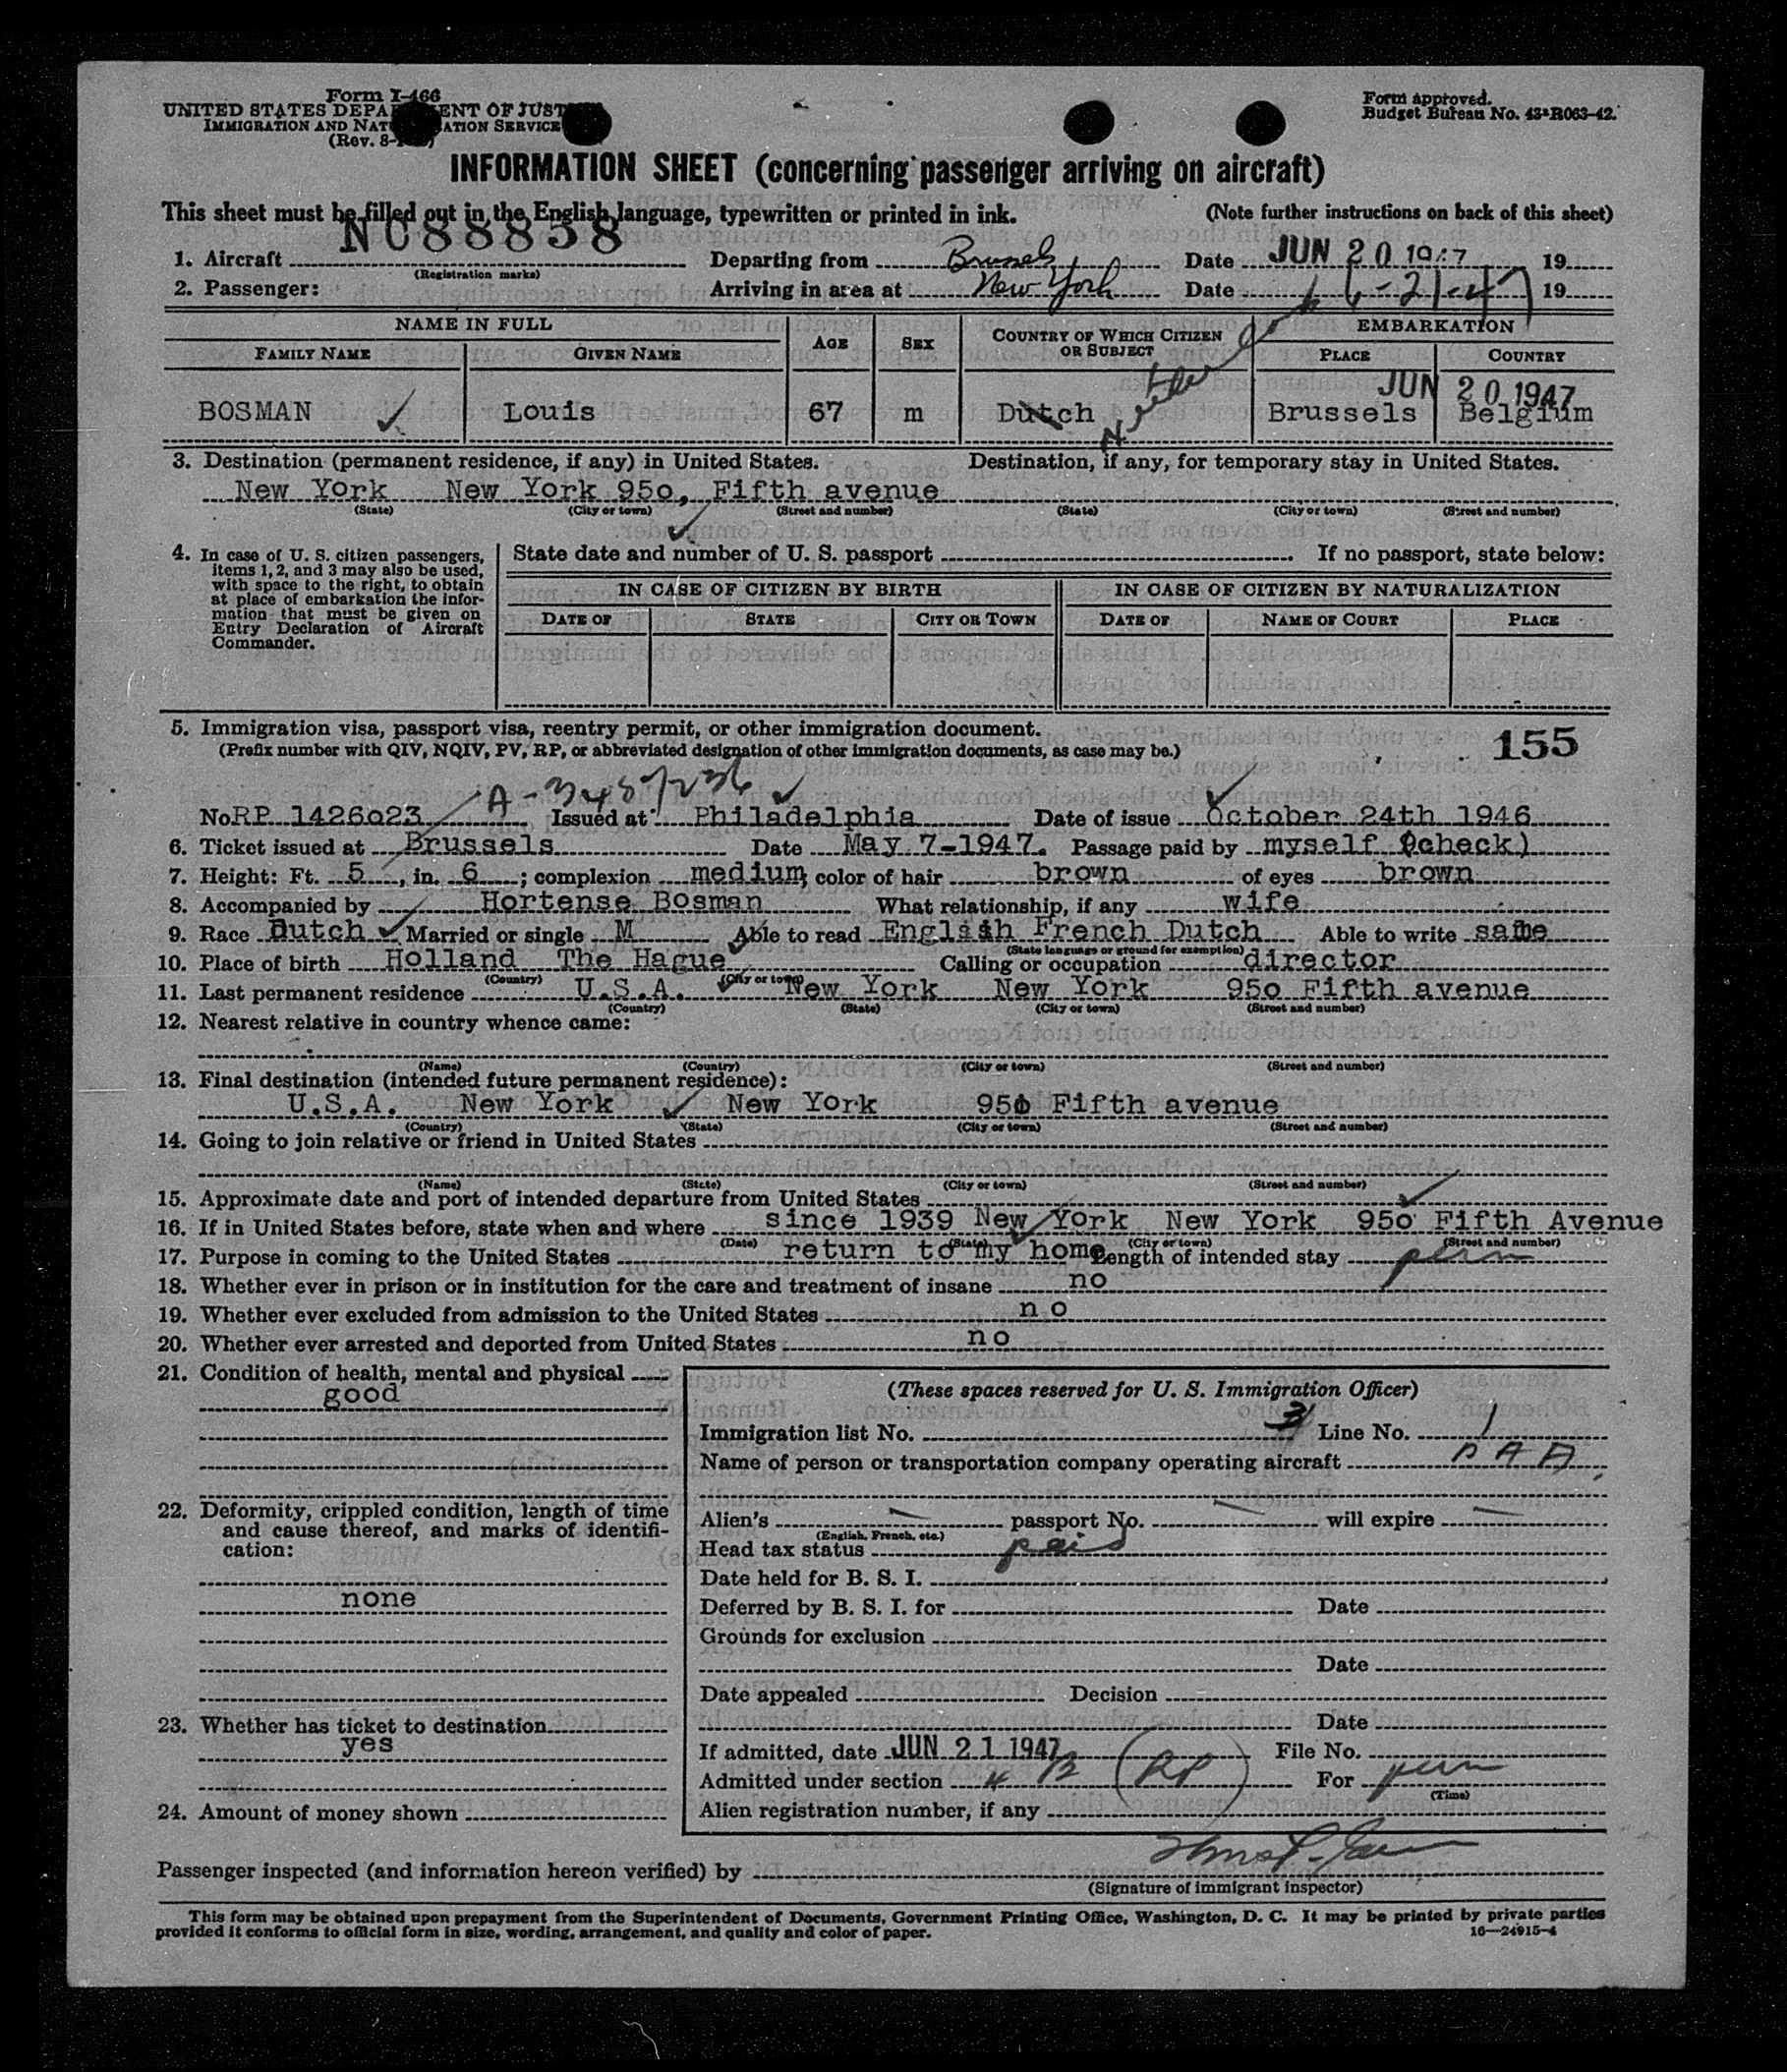 Form I-466
UNITED STATES DEPARTMENT OF JUSTICE
IMMIGRATION AND NATURALIZATION SERVICE
(Rev. 8-
Form approved.
Budget Bureau No. 43-R063-42.
INFORMATION SHEET (concerning passenger arriving on aircraft)
This sheet must be filled out in the English language, typewritten or printed in ink. (Note further instructions on back of this sheet)
1. Aircraft NC88858 Departing from Brussels Date JUN 20 1947 19
(Registration marks)
2. Passenger: Arriving in area at New York Date 6-21-47 19
NAME IN FULL AGE SEX COUNTRY OF WHICH CITIZEN OR SUBJECT EMBARKATION
FAMILY NAME GIVEN NAME PLACE COUNTRY
JUN 20 1947
BOSMAN Louis 67 m Dutch Brussels Belgium
3. Destination (permanent residence, if any) in United States. Destination, if any, for temporary stay in United States.
New York New York 950, Fifth avenue
(State) (City or town) (Street and number) (State) (City or town) (Street and number)
4. In case of U. S. citizen passengers, items 1, 2, and 3 may also be used, with space to the right, to obtain at place of embarkation the information that must be given on Entry Declaration of Aircraft Commander.
State date and number of U. S. passport . If no passport, state below:
IN CASE OF CITIZEN BY BIRTH IN CASE OF CITIZEN BY NATURALIZATION
DATE OF STATE CITY OR TOWN DATE OF NAME OF COURT PLACE
5. Immigration visa, passport visa, reentry permit, or other immigration document.
(Prefix number with QIV, NQIV, PV, RP, or abbreviated designation of other immigration documents, as case may be.) 155
No RP 1426023 Issued at Philadelphia Date of issue October 24th 1946
6. Ticket issued at Brussels Date May 7-1947. Passage paid by myself (check)
7. Height: Ft. 5, in. 6; complexion medium; color of hair brown of eyes brown
8. Accompanied by Hortense Bosman What relationship, if any wife
9. Race Dutch Married or single M Able to read English French Dutch Able to write same
(State language or ground for exemption)
10. Place of birth Holland The Hague Calling or occupation director
(Country) (City or town)
11. Last permanent residence U.S.A. New York New York 950 Fifth avenue
(Country) (State) (City or town) (Street and number)
12. Nearest relative in country whence came:
(Name) (Country) (City or town) (Street and number)
13. Final destination (intended future permanent residence):
U.S.A. New York New York 950 Fifth avenue
(Country) (State) (City or town) (Street and number)
14. Going to join relative or friend in United States
(Name) (State) (City or town) (Street and number)
15. Approximate date and port of intended departure from United States
16. If in United States before, state when and where since 1939 New York New York 950 Fifth Avenue
(Date) (State) (City or town) (Street and number)
17. Purpose in coming to the United States return to my home Length of intended stay perm
18. Whether ever in prison or in institution for the care and treatment of insane no
19. Whether ever excluded from admission to the United States no
20. Whether ever arrested and deported from United States no
21. Condition of health, mental and physical
good
22. Deformity, crippled condition, length of time and cause thereof, and marks of identification:
none
23. Whether has ticket to destination
yes
24. Amount of money shown
(These spaces reserved for U. S. Immigration Officer)
Immigration list No. 3 Line No. 1
Name of person or transportation company operating aircraft PAA
Alien's passport No. will expire
(English, French, etc.)
Head tax status paid
Date held for B. S. I.
Deferred by B. S. I. for Date
Grounds for exclusion
Date
Date appealed Decision
Date
If admitted, date JUN 21 1947 File No.
Admitted under section 4 B (RP) For perm
(Time)
Alien registration number, if any
Passenger inspected (and information hereon verified) by
(Signature of immigrant inspector)
This form may be obtained upon prepayment from the Superintendent of Documents, Government Printing Office, Washington, D. C. It may be printed by private parties
provided it conforms to official form in size, wording, arrangement, and quality and color of paper. 16—24915-4